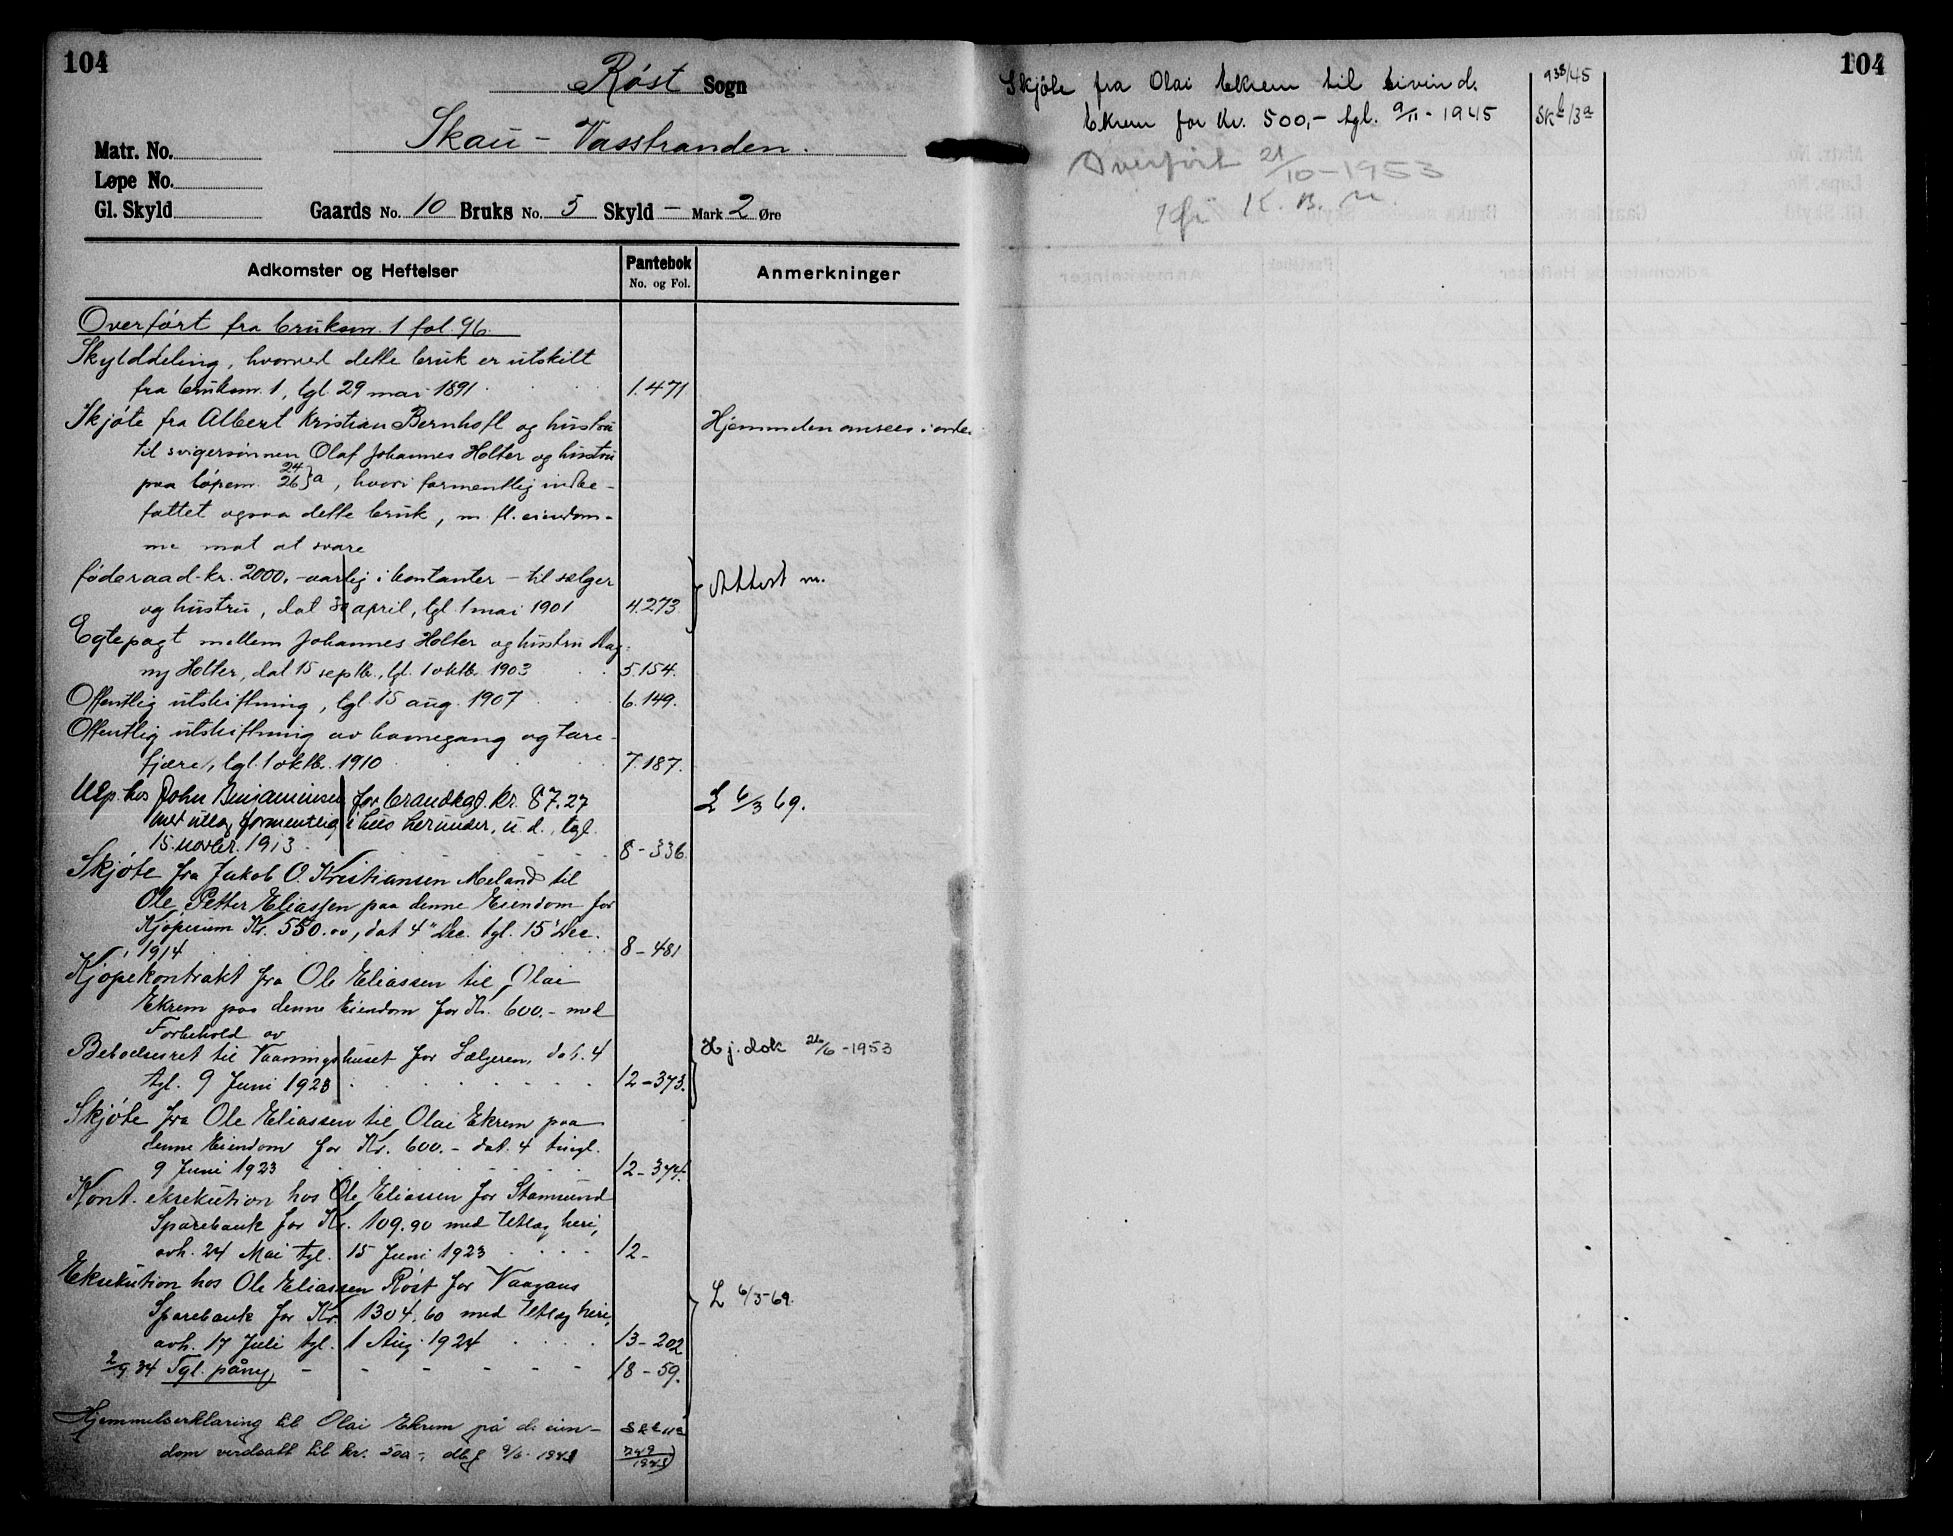 104
Røst Sogn
Skau - Vasstranden.
Matr. No.
Løpe No.
Gl. Skyld
Gaards No. 10 Bruks No. 5 Skyld — Mark 2 Øre
Adkomster og Heftelser
Pantebok
No. og Fol.
Anmerkninger
Overført fra bruksnr. 1 fol. 96.
Skylddeling, hvorved dette bruk er utskilt
fra bruksnr. 1, tgl. 29 mai 1891 1.471
Skjøte fra Albert Kristian Bernhoft og hustru Hjemmelen ansees i orden
til svigersønnen Olaf Johannes Holter og hustru
paa løpenr. 24 26 }a, hvori formentlig indbe-
fattet ogsaa dette bruk, m. fl. eiendom-
me mot at svare
føderaad - kr. 2000,- aarlig i kontanter - til sælger
og hustru, dat 30 april, tgl. 1 mai 1901 4.273
Egtepagt mellem Johannes Holter og hustru Mag-
ny Holter, dat 15 septbr., tgl. 1 oktbr. 1903 5.154.
Offentlig utskiftning, tgl. 15 aug. 1907 6.149.
Offentlig utskiftning av havnegang og tare-
fjære, tgl. 1 oktbr. 1910 7.187.
Utlp. hos John Benjaminsen for brandktgt. kr. 87.27 L 6/3 69.
med utlæg formentlig i hus herunder, u. d., tgl.
15. novbr. 1913 8-336
Skjøte fra Jakob O. Kristiansen Meland til
Ole Petter Eliassen paa denne Eiendom for
Kjøpesum Kr. 550.00, dat 4 Dec. tgl. 15 Dec.
1914 8-481
Kjøpekontrakt fra Ole Eliassen til Olai
Ekrem paa denne Eiendom for Kr. 600.- med
Forbehold av
Beboelsesret til Vaaningshuset for Sælgeren, dat. 4 Hj. dok 26/6-1953
tgl. 9 Juni 1923 12-373.
Skjøte fra Ole Eliassen til Olai Ekrem paa
denne Eiendom for Kr. 600.- dat. 4 tingl.
9 Juni 1923 12-374.
Kont. eksekution hos Ole Eliassen for Stamsund
Sparebank for Kr. 109.90 med Utlæg heri,
avh. 24 Mai tgl. 15 Juni 1923 12-
Eksekution hos Ole Eliassen Røst for Vaagans L 6/3-69.
Sparebank for Kr. 1304.60 med Utlæg heri,
avh. 17 Juli tgl. 1 Aug. 1924 13-202
2/9 34 Tgl. påny - - - - - - 18-59.
Hjemmelserklæring til Olai Ekrem på d. eien-
dom verdsatt til kr. 500,-
104
Skjøte fra Olai Ekrem til Eivind 938/45
Ekrem for kr. 500,- tgl. 9/11-1945 Sk b 13a
Overført 21/10-1953
K. B. N.